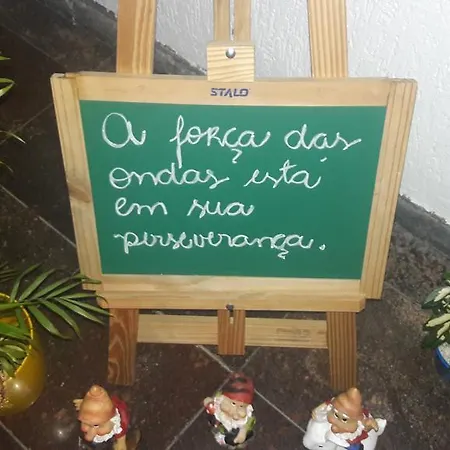 STALO
A força das
ondas está
em sua
perseverança.